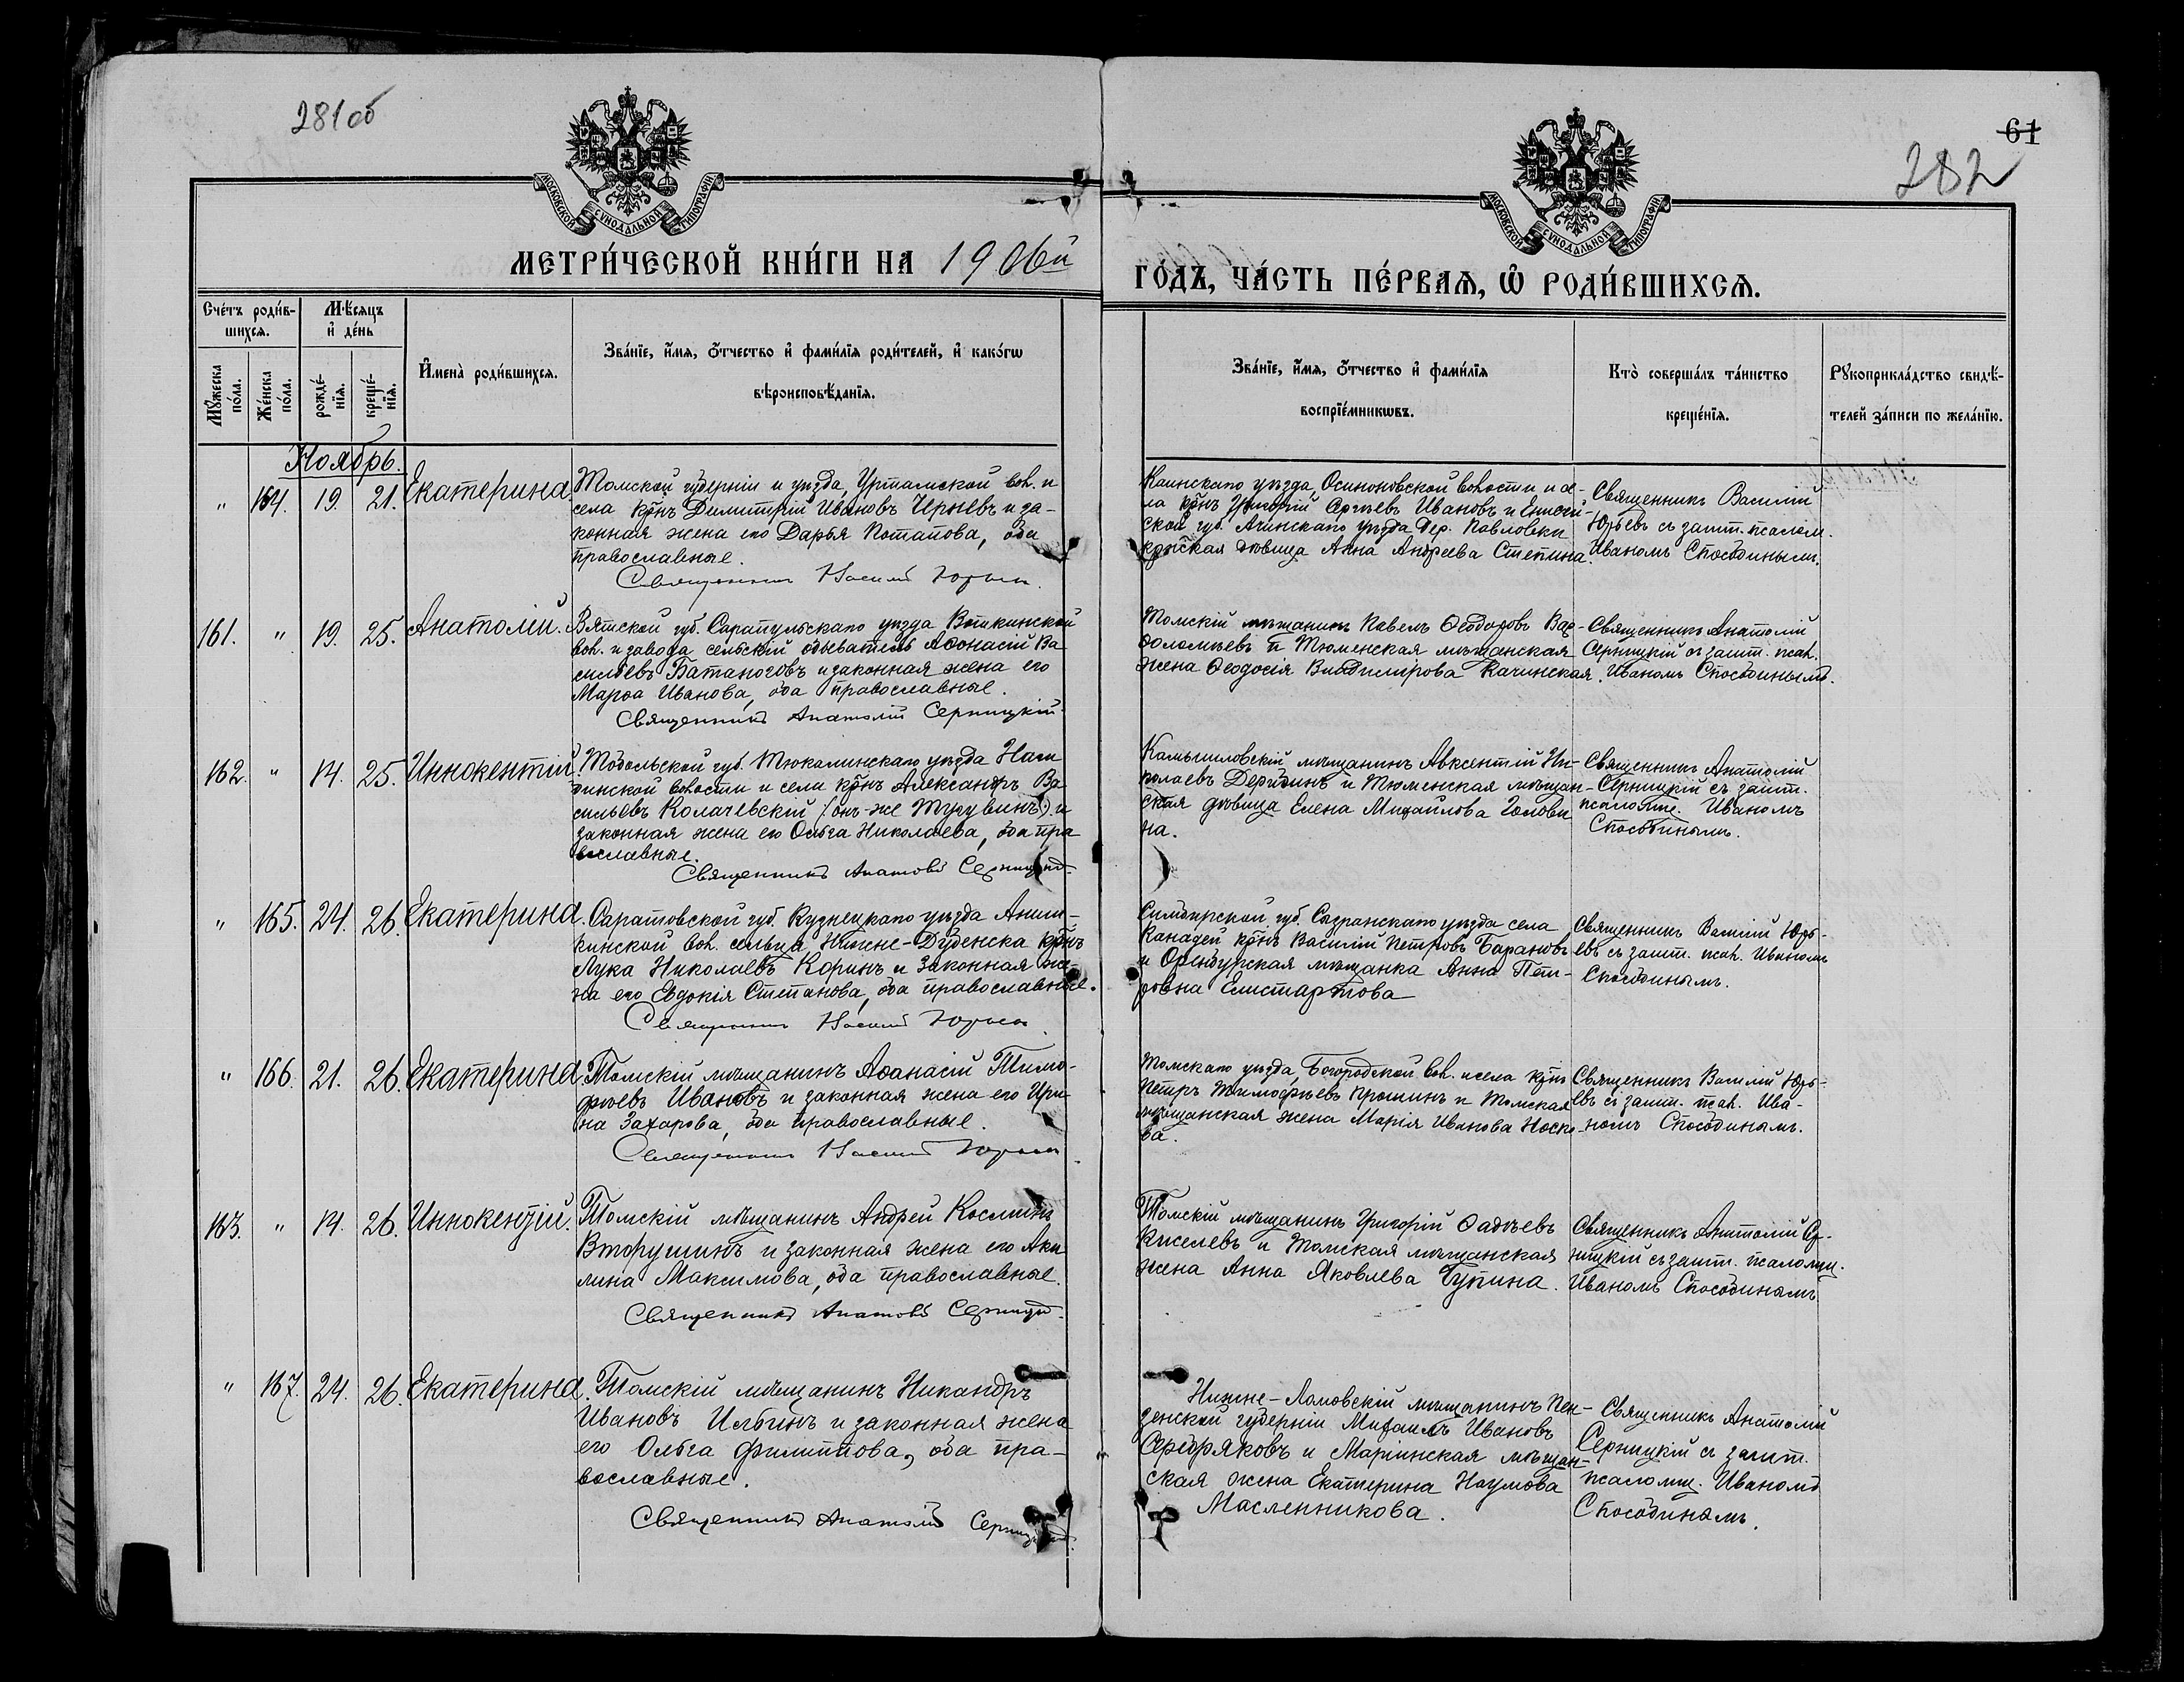 281 об
61
282
МОСКОВСКОЙ СѴНОДАЛЬНОЙ ТИПОГРАФІИ
МОСКОВСКОЙ СѴНОДАЛЬНОЙ ТИПОГРАФІИ
МЕТРИ́ЧЕСКОЙ КНИ́ГИ НА 1906й
ГО́ДЪ, ЧА́СТЬ ПЕ́РВАѦ, Ѽ РОДИ́ВШИХСѦ.
Сче́тъ роди́в-
шихсѧ.
Мѣ́сѧцъ
и҆ де́нь
Мꙋ́жеска
по́ла.
Же́нска
по́ла.
рожде́-
нїѧ.
креще́-
нїѧ.
И҆мена̀ роди́вшихсѧ.
Зва́нїе, и҆́мѧ, о҆́тчество и҆ фами́лїѧ роди́телей, и҆ како́гѡ
вѣроисповѣ́данїѧ.
Зва́нїе, и҆́мѧ, о҆́тчество и҆ фами́лїѧ
воспрїе́мникѡвъ.
Кто̀ соверша́лъ та́инство
креще́нїѧ.
Рꙋкоприкла́дство свидѣ́-
телей за́писи по жела́нїю.
Ноябрь.
" 164. 19. 21. Екатерина.
Томской губерніи и уѣзда, Уртамской вол. и
села крнъ Димитрій Ивановъ Чрыевъ и за-
конная жена его Дарья Потапова, оба
православные.
Священникъ Василій Юрьевъ.
Каинскаго уѣзда, Осиноновской волости и се-
ла крнъ Григорій Сергѣевъ Ивановъ и Енисей-
ской губ. Ачинскаго уѣзда дер. Павловки
крнская дѣвица Анна Андреева Степина.
Священникъ Василій
Юрьевъ съ зашт. псалом.
Иваномъ Способинымъ.
161. " 19. 25. Анатолій.
Вятской губ. Сарапульскаго уѣзда Воткинской
вол. и завода сельскій обыватель Аѳонасій Ва
сильевъ Батаноговъ и законная жена его
Марѳа Иванова, оба православные.
Священникъ Анатолій Серницкій.
Томскій мѣщанинъ Павелъ Ѳеодоровъ Вар-
ѳоломѣевъ и Тюменская мѣщанская
жена Ѳеодосія Владимірова Качинская.
Священникъ Анатолій
Серницкій съ зашт. псал.
Иваномъ Способинымъ.
162. " 14. 25. Иннокентій.
Тобольской губ. Тюкалинскаго уѣзда Наги
бинской волости и села крнъ Александръ Ва
сильевъ Колачевскій (онъ-же Туру винъ) и
законная жена его Ольга Николаева, оба пра
вославные.
Священникъ Анатолій Серницкій.
Камышловскій мѣщанинъ Авксентій Ни-
колаевъ Дерябинъ и Тюменская мѣщан-
ская дѣвица Елена Михайлова Голови
на.
Священникъ Анатолій
Серницкій съ зашт.
псаломщ. Иваномъ
Способинымъ.
" 165. 24. 26. Екатерина.
Саратовской губ. Кузнецкаго уѣзда Анни-
кинской вол. сельца Нижне-Дубенска крнъ
Лука Николаевъ Коринъ и законная же-
на его Евдокія Степанова, оба православные.
Священникъ Василій Юрьевъ.
Симбирской губ. Сызранскаго уѣзда села
Канадей крнъ Василій Петровъ Барановъ
и Оренбургская мѣщанка Анна Пет-
ровна Елистартова
Священникъ Василій Юрь-
евъ съ зашт. псал. Иваномъ
Способинымъ.
" 166. 21. 26. Екатерина.
Томскій мѣщанинъ Аѳанасій Тимо-
фѣевъ Ивановъ и законная жена его Ири
на Захарова, оба православные.
Священникъ Василій Юрьевъ.
Томскаго уѣзда, Богородской вол. и села крнъ
Петръ Тимофѣевъ Крошинъ и Томская
мѣщанская жена Марія Иванова Носко-
ва.
Священникъ Василій Юрь-
евъ съ зашт. псал. Ива-
номъ Способинымъ.
163. " 14. 26. Иннокентій.
Томскій мѣщанинъ Андрей Косминъ
Вторушинъ и законная жена его Аки
лина Максимова, оба православные.
Священникъ Анатолій Серницкій.
Томскій мѣщанинъ Григорій Ѳадѣевъ
Киселевъ и Томская мѣщанская
жена Анна Яковлева Чупина.
Священникъ Анатолій Сер-
ницкій съ зашт. псаломщ.
Иваномъ Способинымъ
" 167. 24. 26. Екатерина.
Томскій мѣщанинъ Никандръ
Ивановъ Илбинъ и законная жена
его Ольга Филиппова, оба пра-
вославные.
Священникъ Анатолій Серницкій.
Нижне-Ломовскій мѣщанинъ Пен-
зенской губерніи Михаилъ Ивановъ
Серебряковъ и Маріинская мѣщан-
ская жена Екатерина Наумова
Масленникова.
Священникъ Анатолій
Серницкій съ зашт.
псаломщ. Иваномъ
Способинымъ.